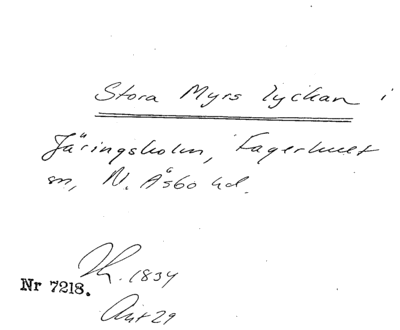 Stora Myrs lyckan i
Järingsholm, Fagerhult
sn, N. Åsbo hd.
1834
Nr 7218.
Akt 29